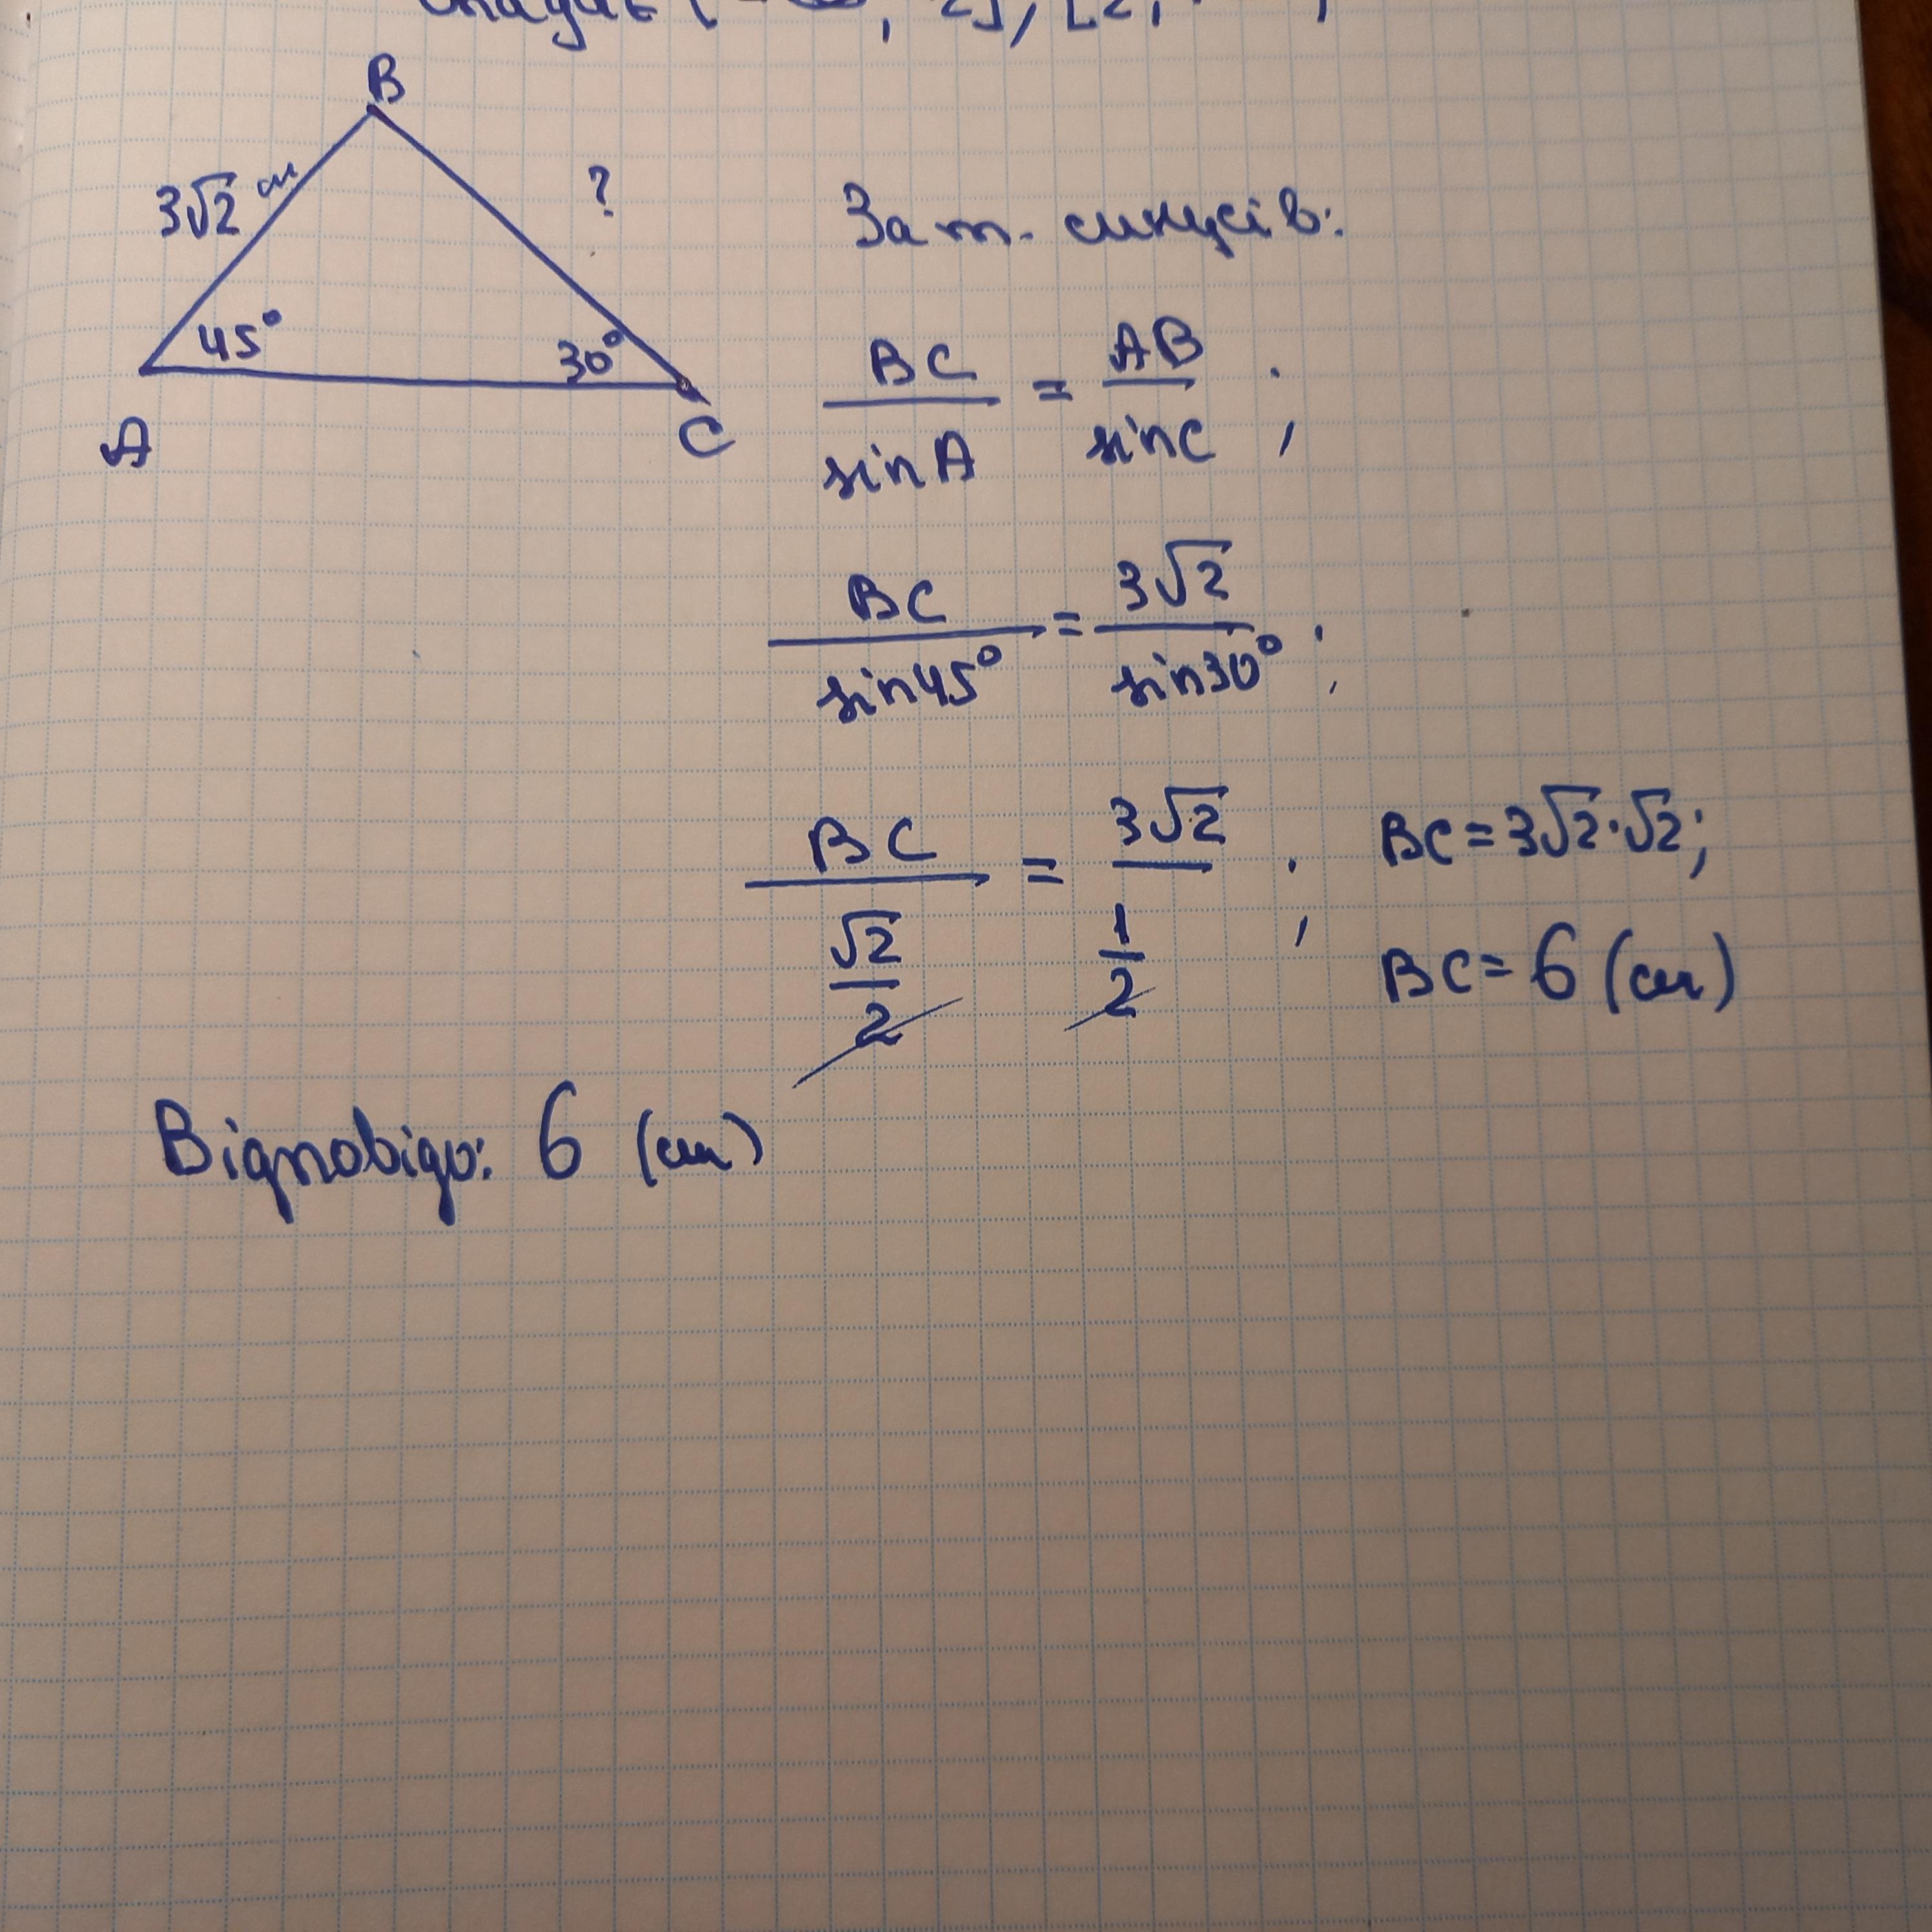 B
3√2 см
?
45°
30°
A
C
За т. синусів:
BC/sinA = AB/sinC ;
BC/sin45° = 3√2/sin30° ;
BC/(√2/2) = 3√2/(1/2) ; BC = 3√2·√2;
BC = 6 (см)
Відповідь: 6 (см)